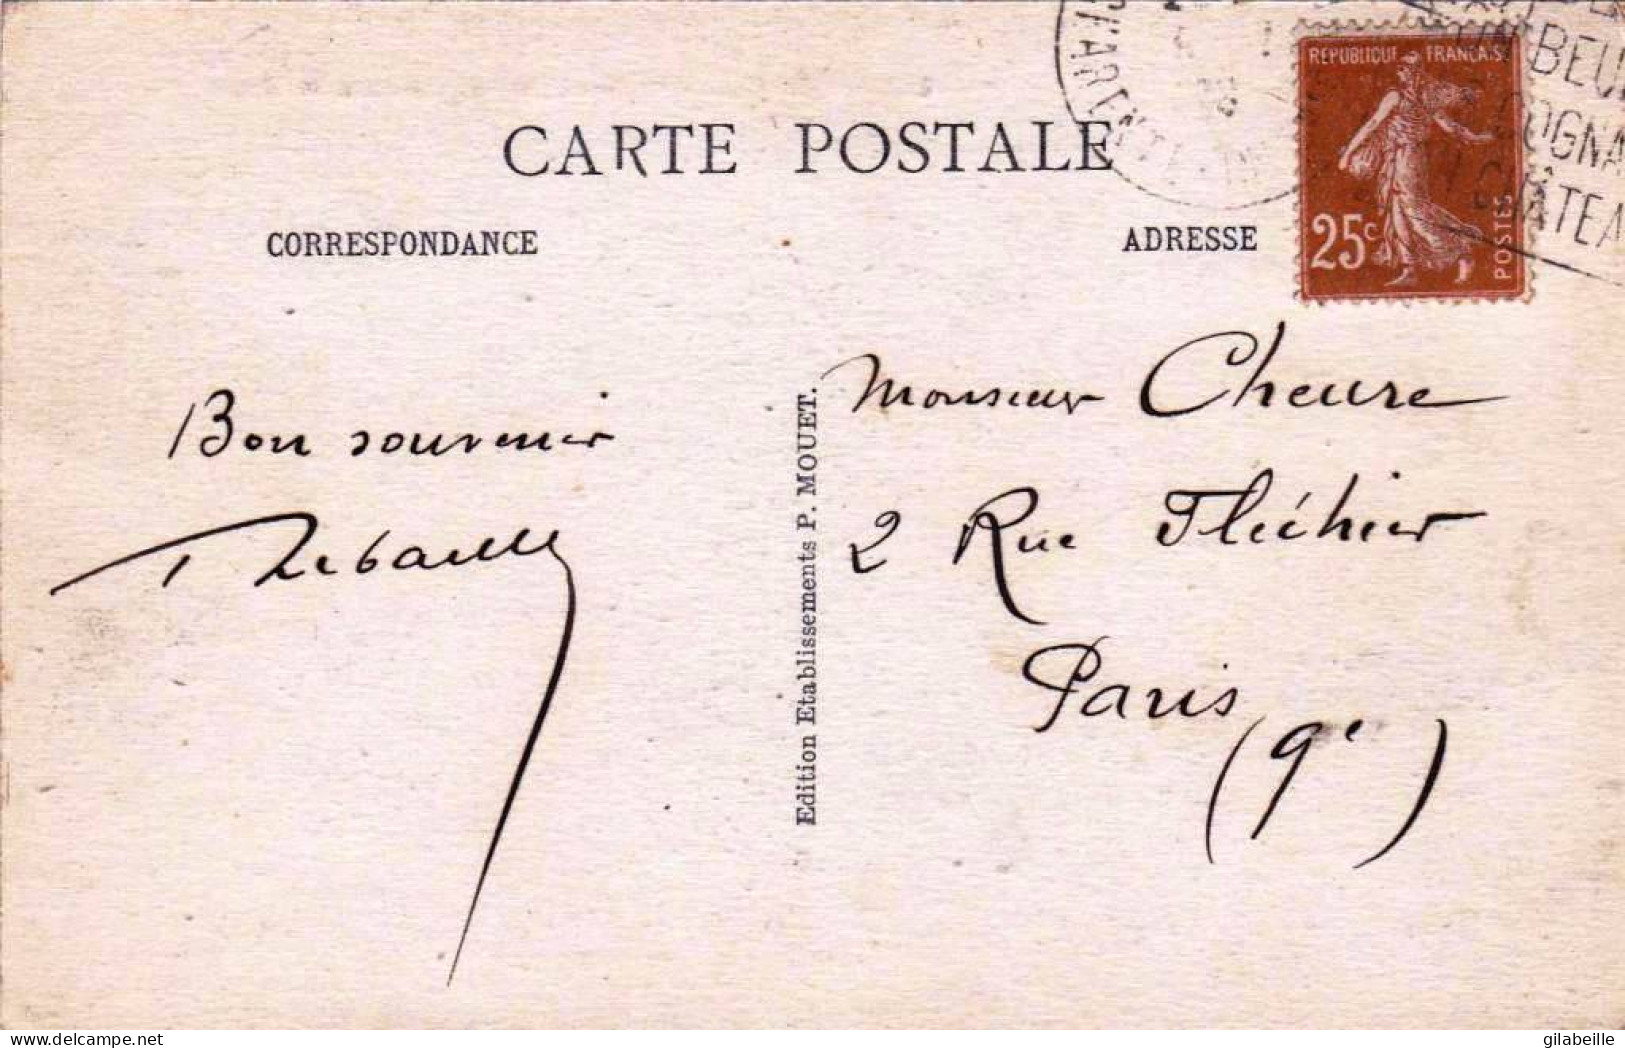 CARTE POSTALE
CORRESPONDANCE
ADRESSE
REPUBLIQUE FRANCAISE
25c
POSTES
COGNA
CHÂTEA
Bon souvenir
Edition Etablissements P. MOUET.
Monsieur Cheure
2 Rue Fléchier
Paris
(9e)
gilabeille